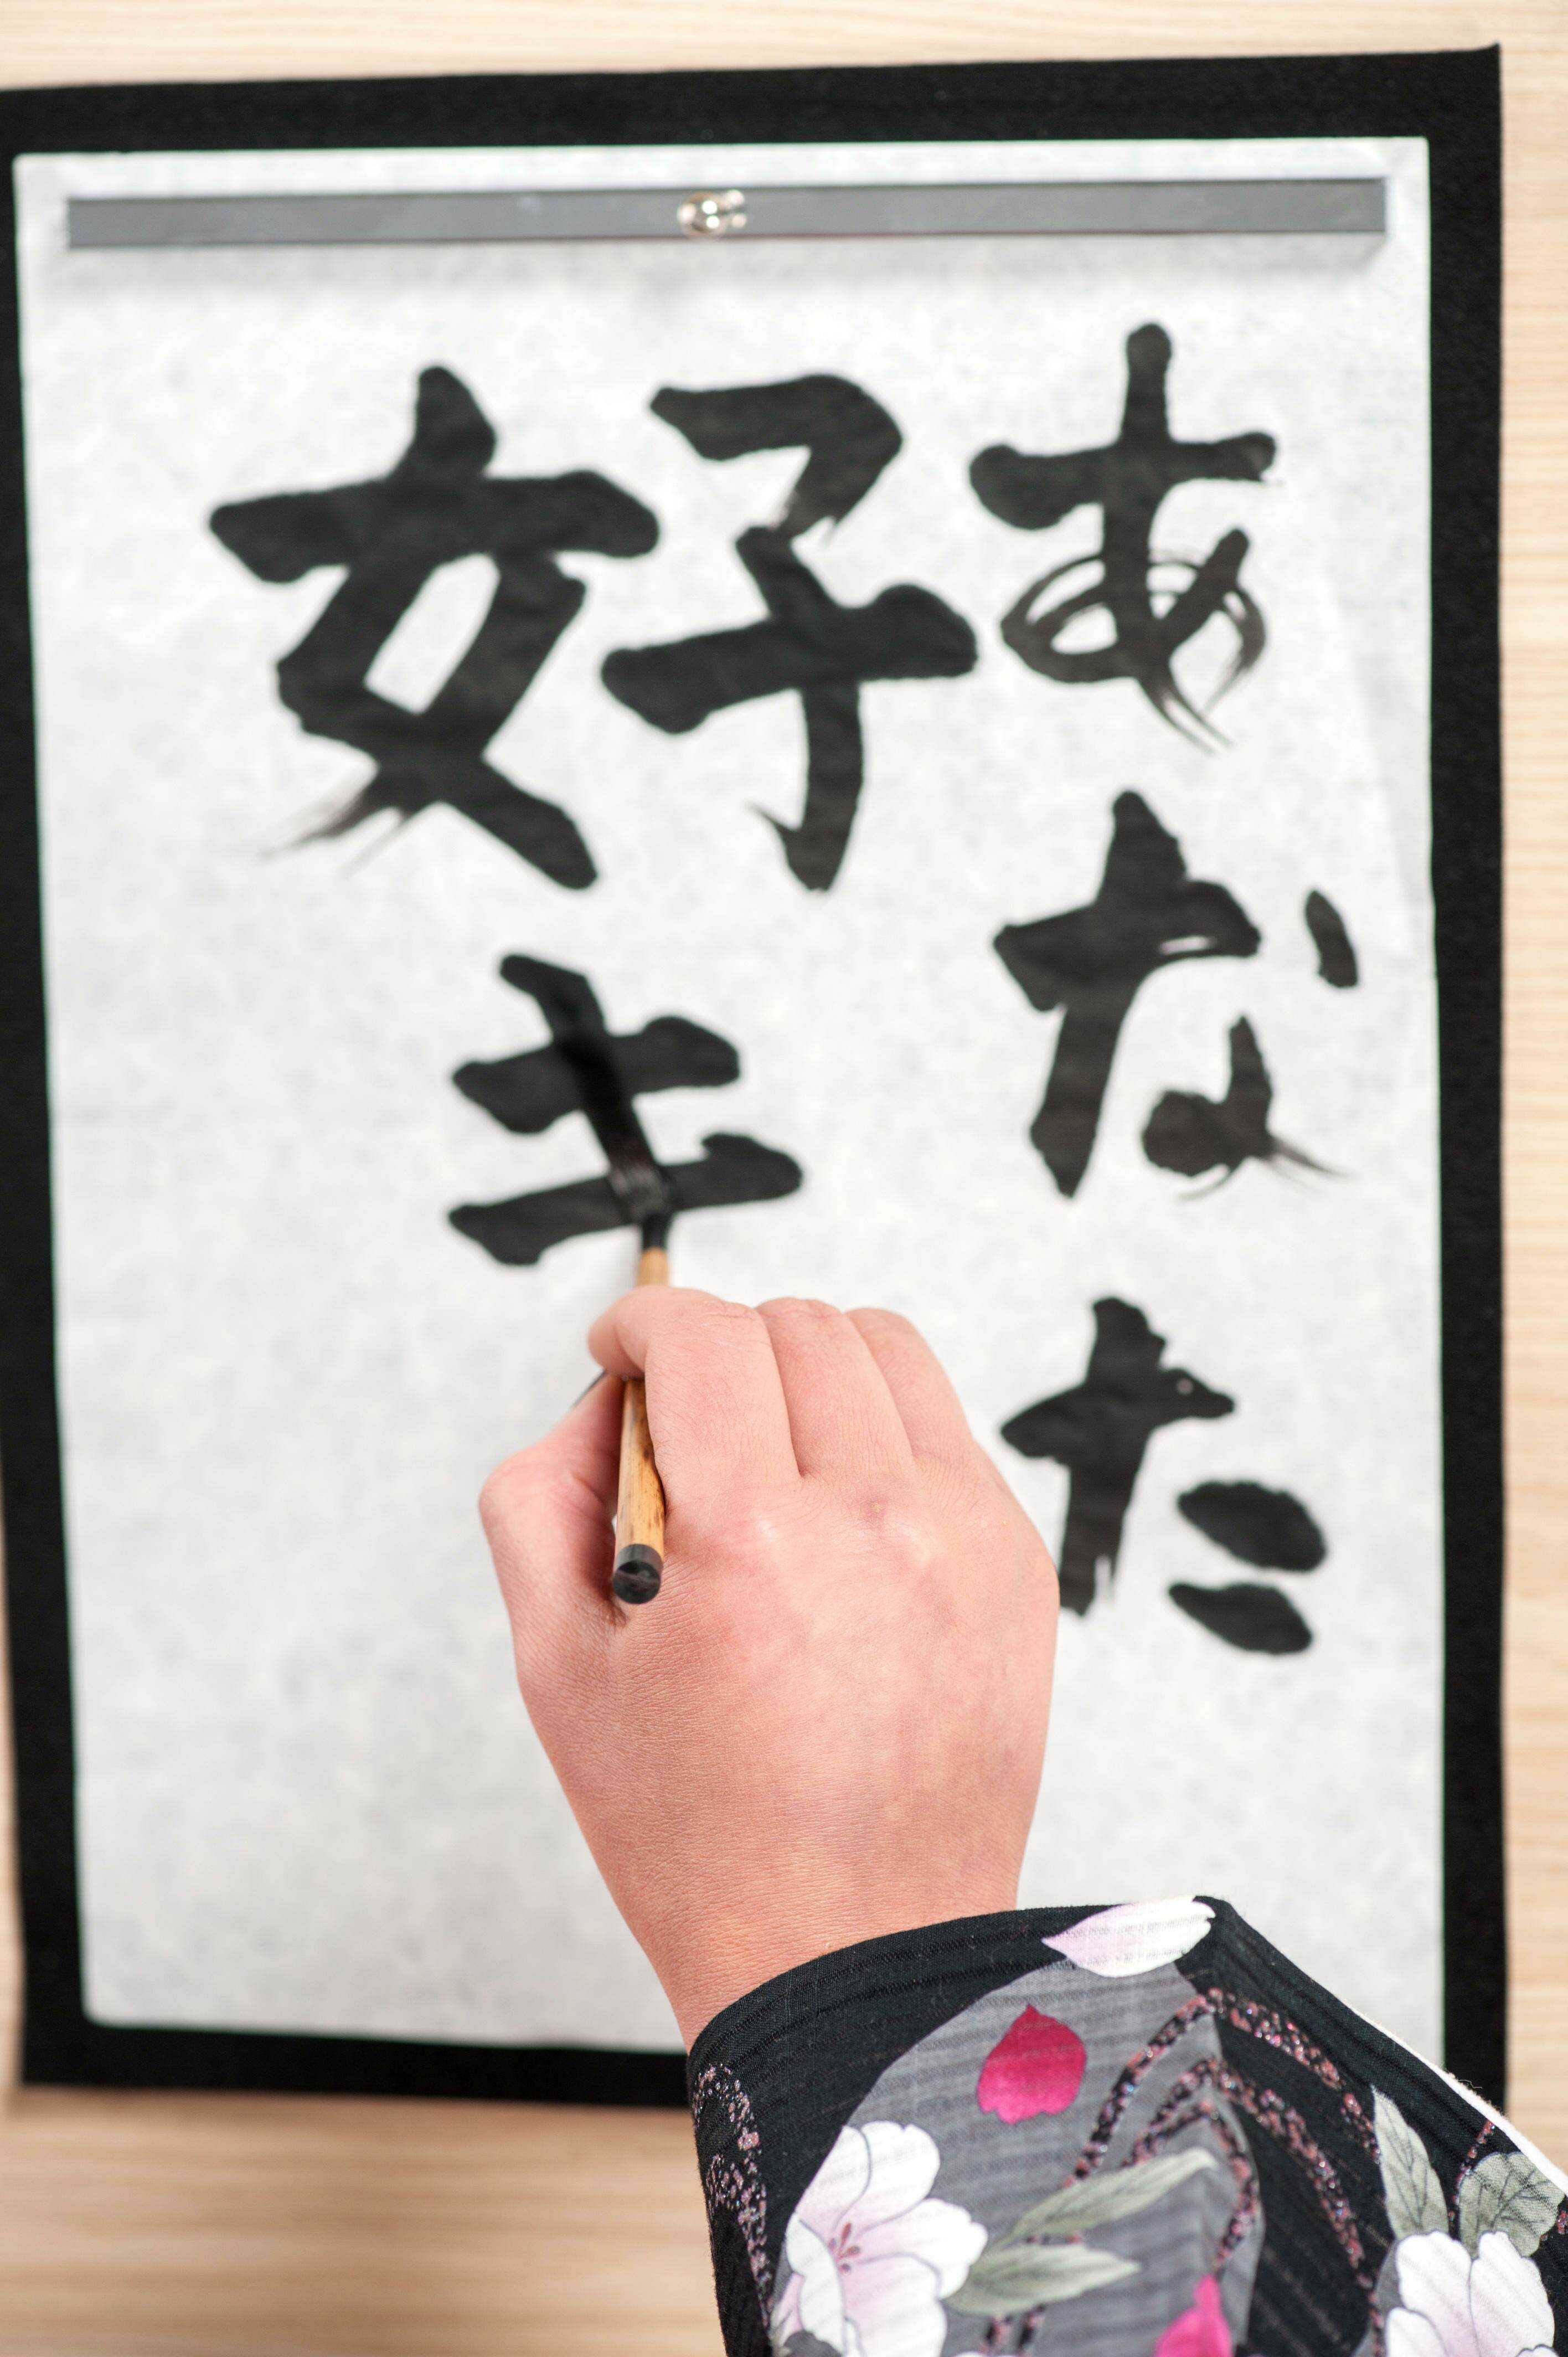 あなた
好き